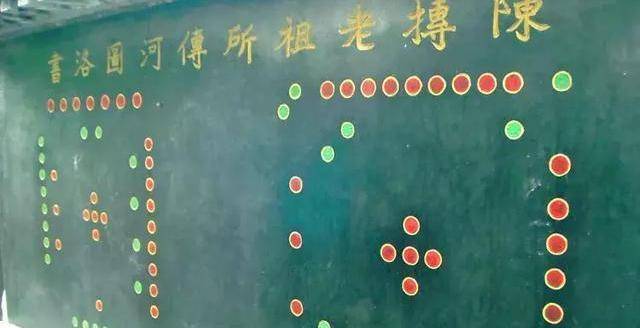 陳摶老祖所傳河圖洛書